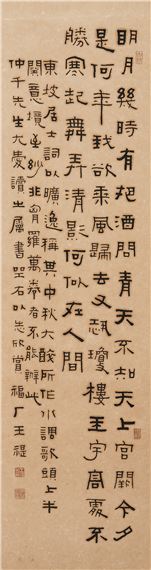 明月幾時有把酒問青天不知天上宮闕今夕
是何年我欲乘風歸去又恐瓊樓玉宇高處不
勝寒起舞弄清影何似在人間
東坡居士詞以曠逸稱其中秋大醉所作水調歌頭上半
闋意境並妙非胷羅萬卷者不能辦此
仲千先生尤愛讀之屬書堅石以志欣賞福厂王禔